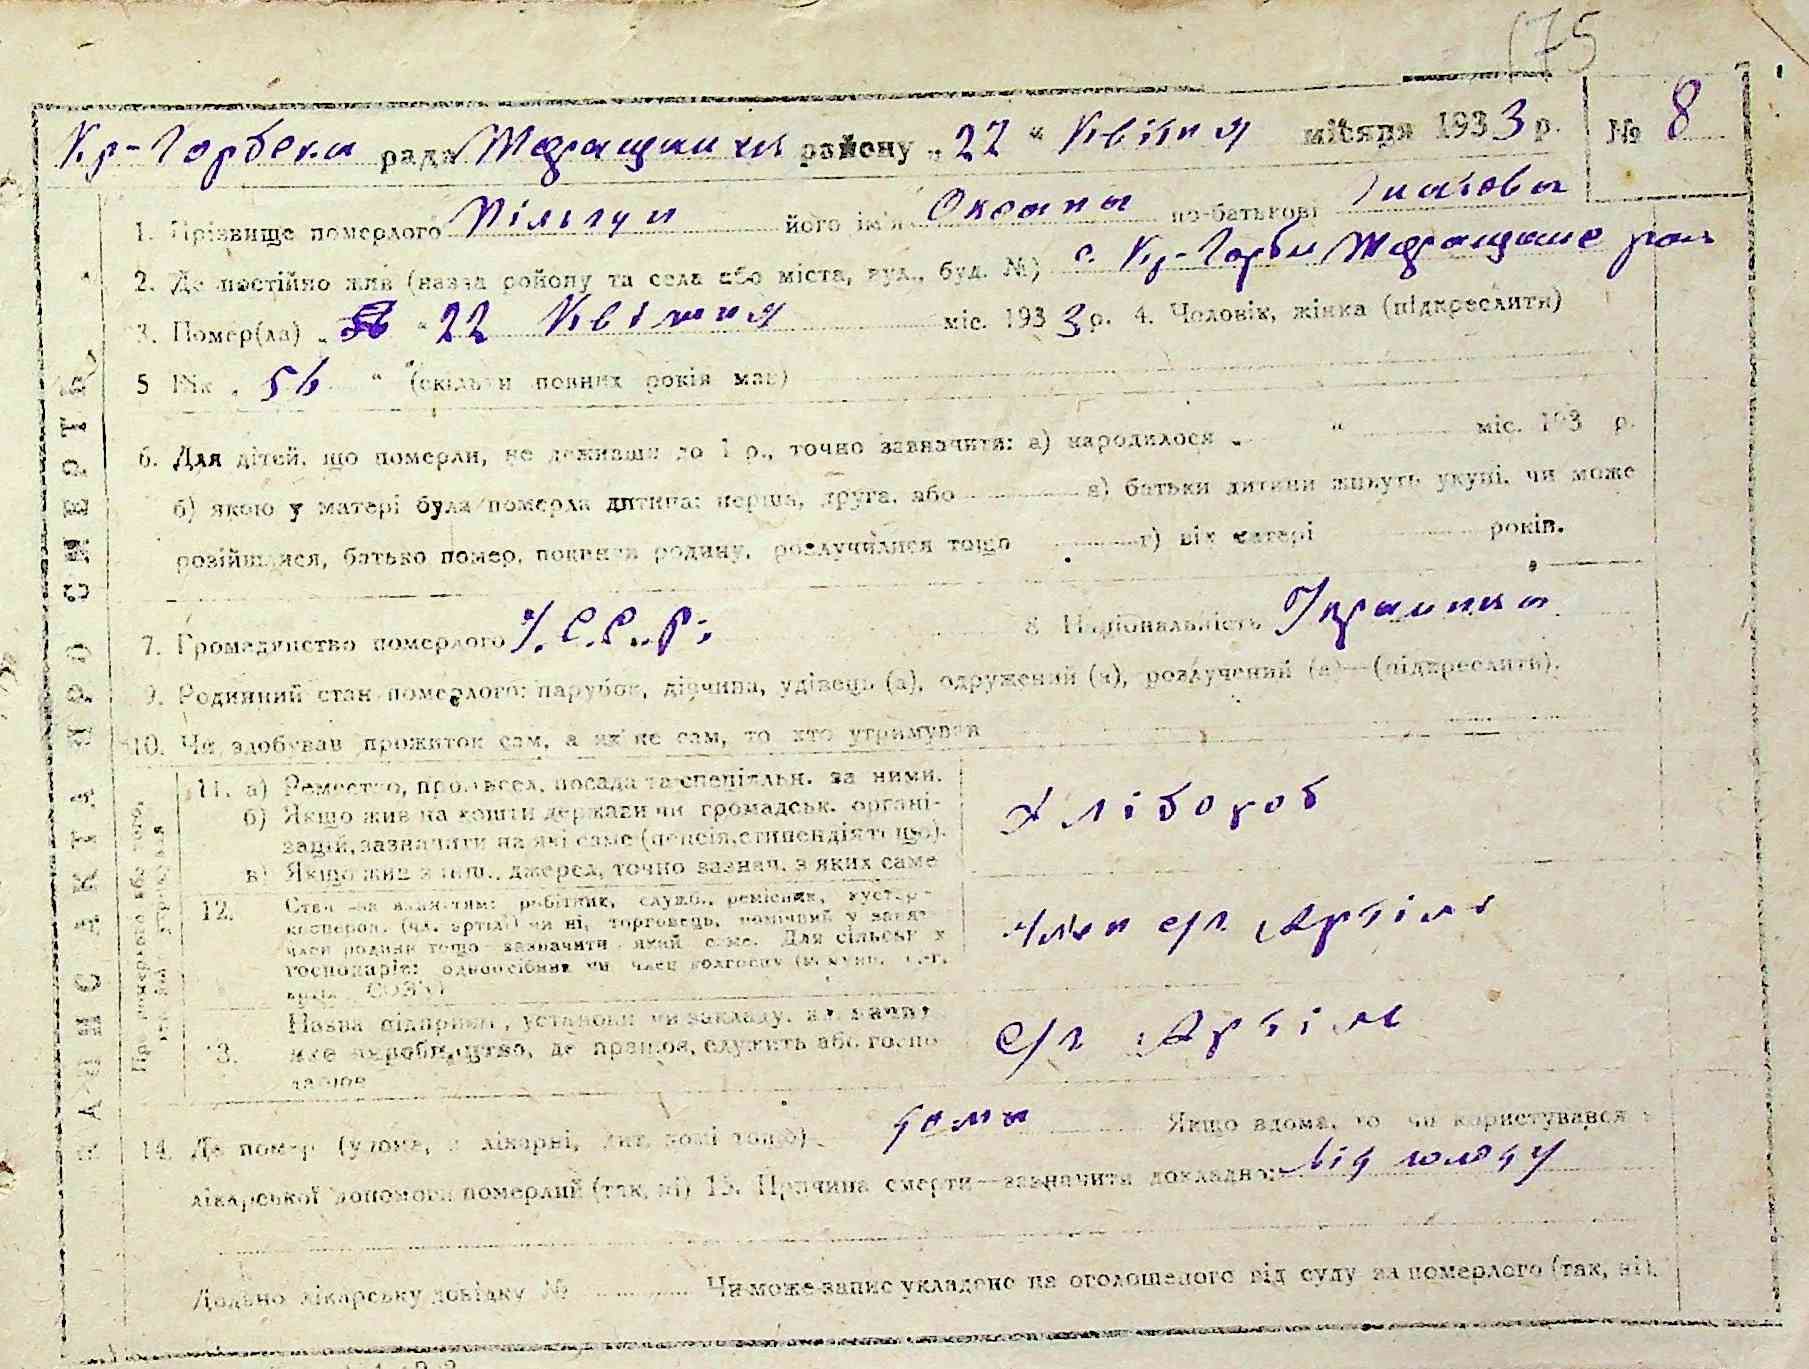 175
Кр-Горбека рада Таращанськ району „22“ Квітня місяця 1933 р. № 8
1. Прізвище померлого Пільгуй його ім'я Оксана по-батькові
2. Де постійно жив (назва району та села або міста, вул., буд. №) с. Кр-Горбк Таращанс
3. Помер(ла) „22 Квітня міс. 1933 р. 4. Чоловік, жінка (підкреслити)
5 Вік „56“ (скільки повних років мав)
6. Для дітей, що померли, не доживши до 1 р., точно зазначити: а) народилося „ “ міс. 193 р.
б) якою у матері була померла дитина: перша, друга, або в) батьки дитини живуть укупі, чи може
розійшлися, батько помер, покинув родину, розлучилися тощо г) вік матері років.
7. Громадянство померлого У.С.С.Р. 8 Національність Українка
9. Родинний стан померлого: парубок, дівчина, удівець (а), одружений (а), розлучений (а)—(підкреслити).
10. Чи здобував прожиток сам, а як не сам, то хто утримував
11. а) Ремество, промисел, посада та спеціяльн. за ними.
б) Якщо жив на кошти держави чи громадськ. органі-
зацій, зазначити на які саме (пенсія, стипендія тощо).
в) Якщо жив з інш. джерел, точно зазнач. з яких саме
Хлібороб
12. Стан за заняттям: робітник, служб., ремісник, кустар-
коопиров. (чл. артілі) чи ні, торговець, помічний у занят.
член родини тощо зазначити який саме. Для сільськ х
господарів: одноосібник чи член колгоспу
СОЗ'у)
Член с/г Артілі
13. Назва підприєм., установи чи закладу, яке
яке виробництво, де працює, служить або госпо-
дарює
с/г Артіль
14. Де помер (удома, в лікарні, дит. домі тощо) дома Якщо вдома, то чи користувався з
лікарської допомоги померлий (так, ні) 15. Причина смерти—зазначити докладно: Від голоду
Додано лікарську довідку № Чи може запис укладено на оголошеного від суду за померлого (так, ні).
ЗАПИС АКТА ПРО СМЕРТЬ